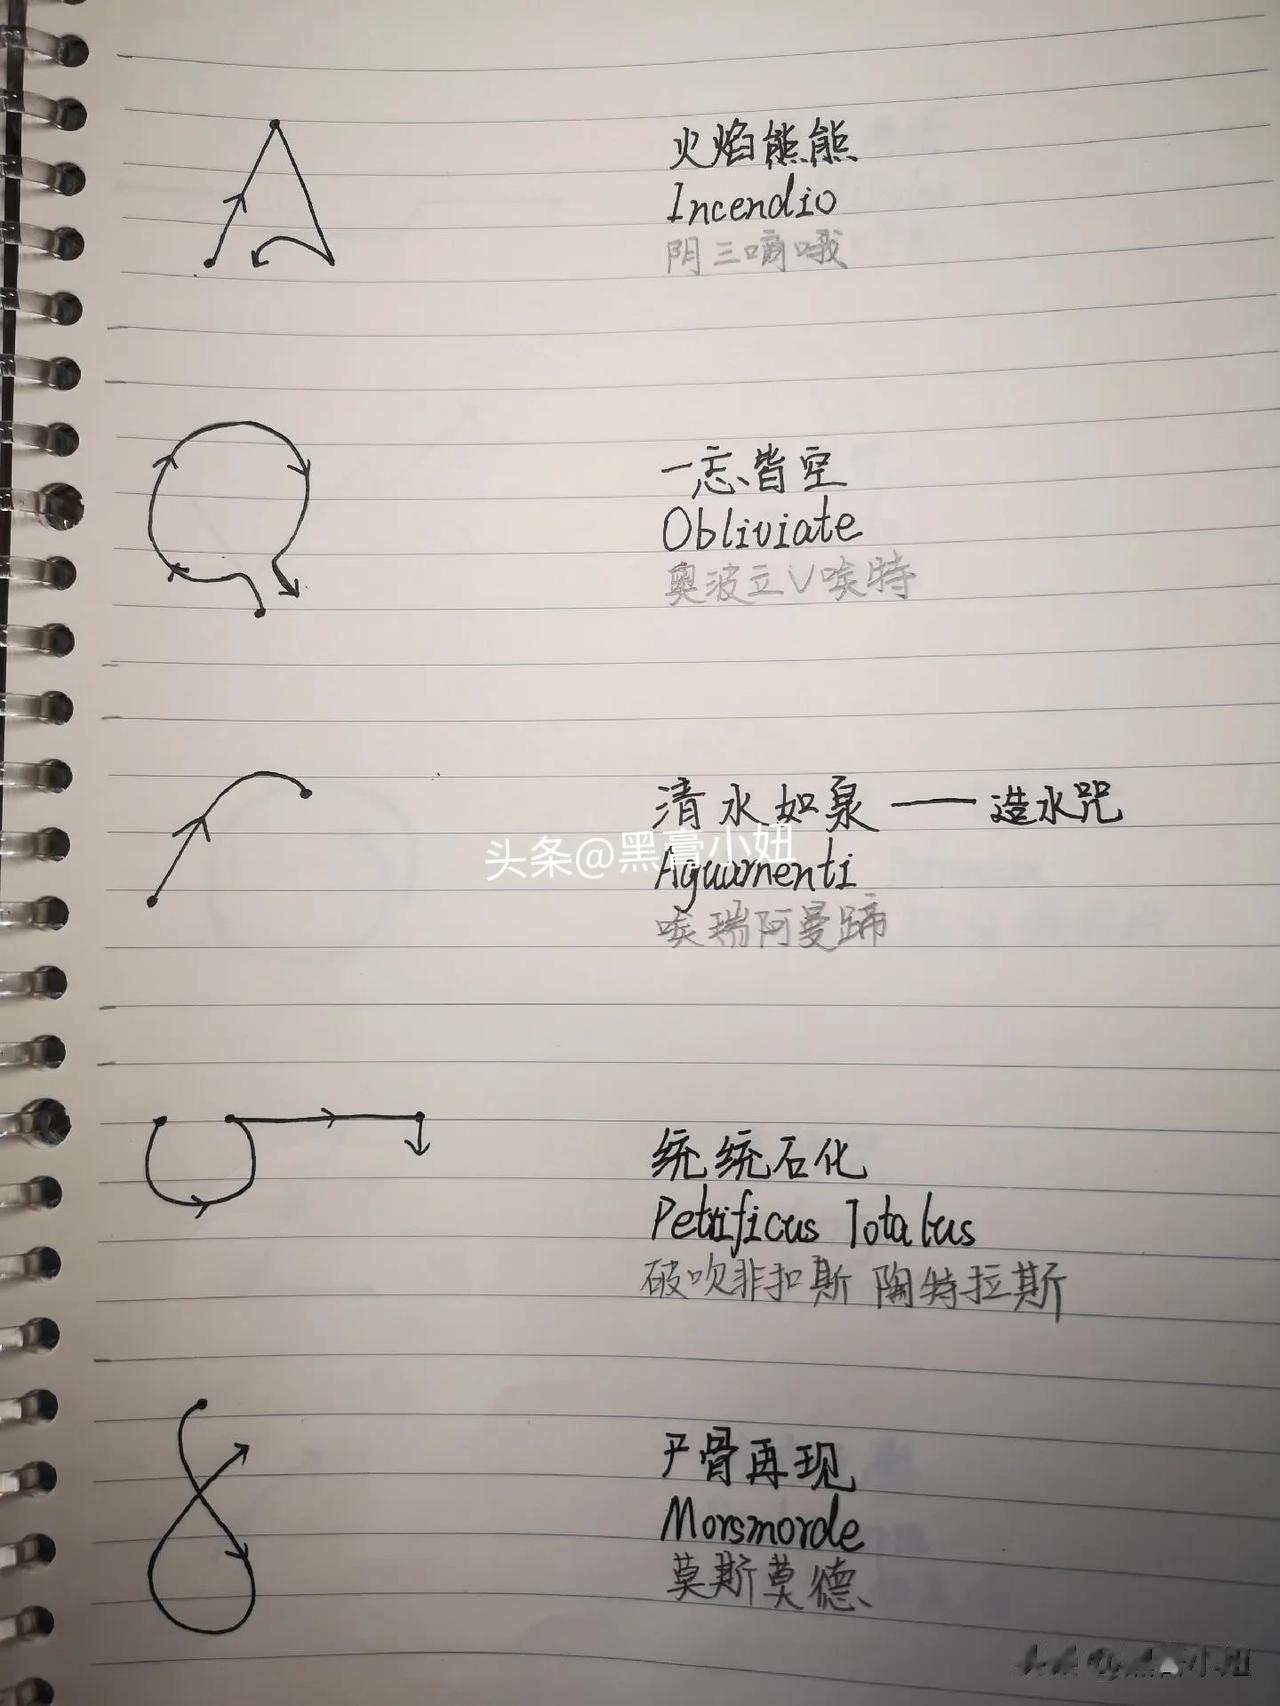 火焰熊熊
Incendio
阴三嘀哦
一忘皆空
Obliviate
奥波立V唉特
清水如泉——造水咒
头条@黑膏小妞
Aguamenti
唉瑞阿曼蹄
统统石化
Petrificus Totalus
破吹非扣斯 陶特拉斯
尸骨再现
Morsmorde
莫斯莫德